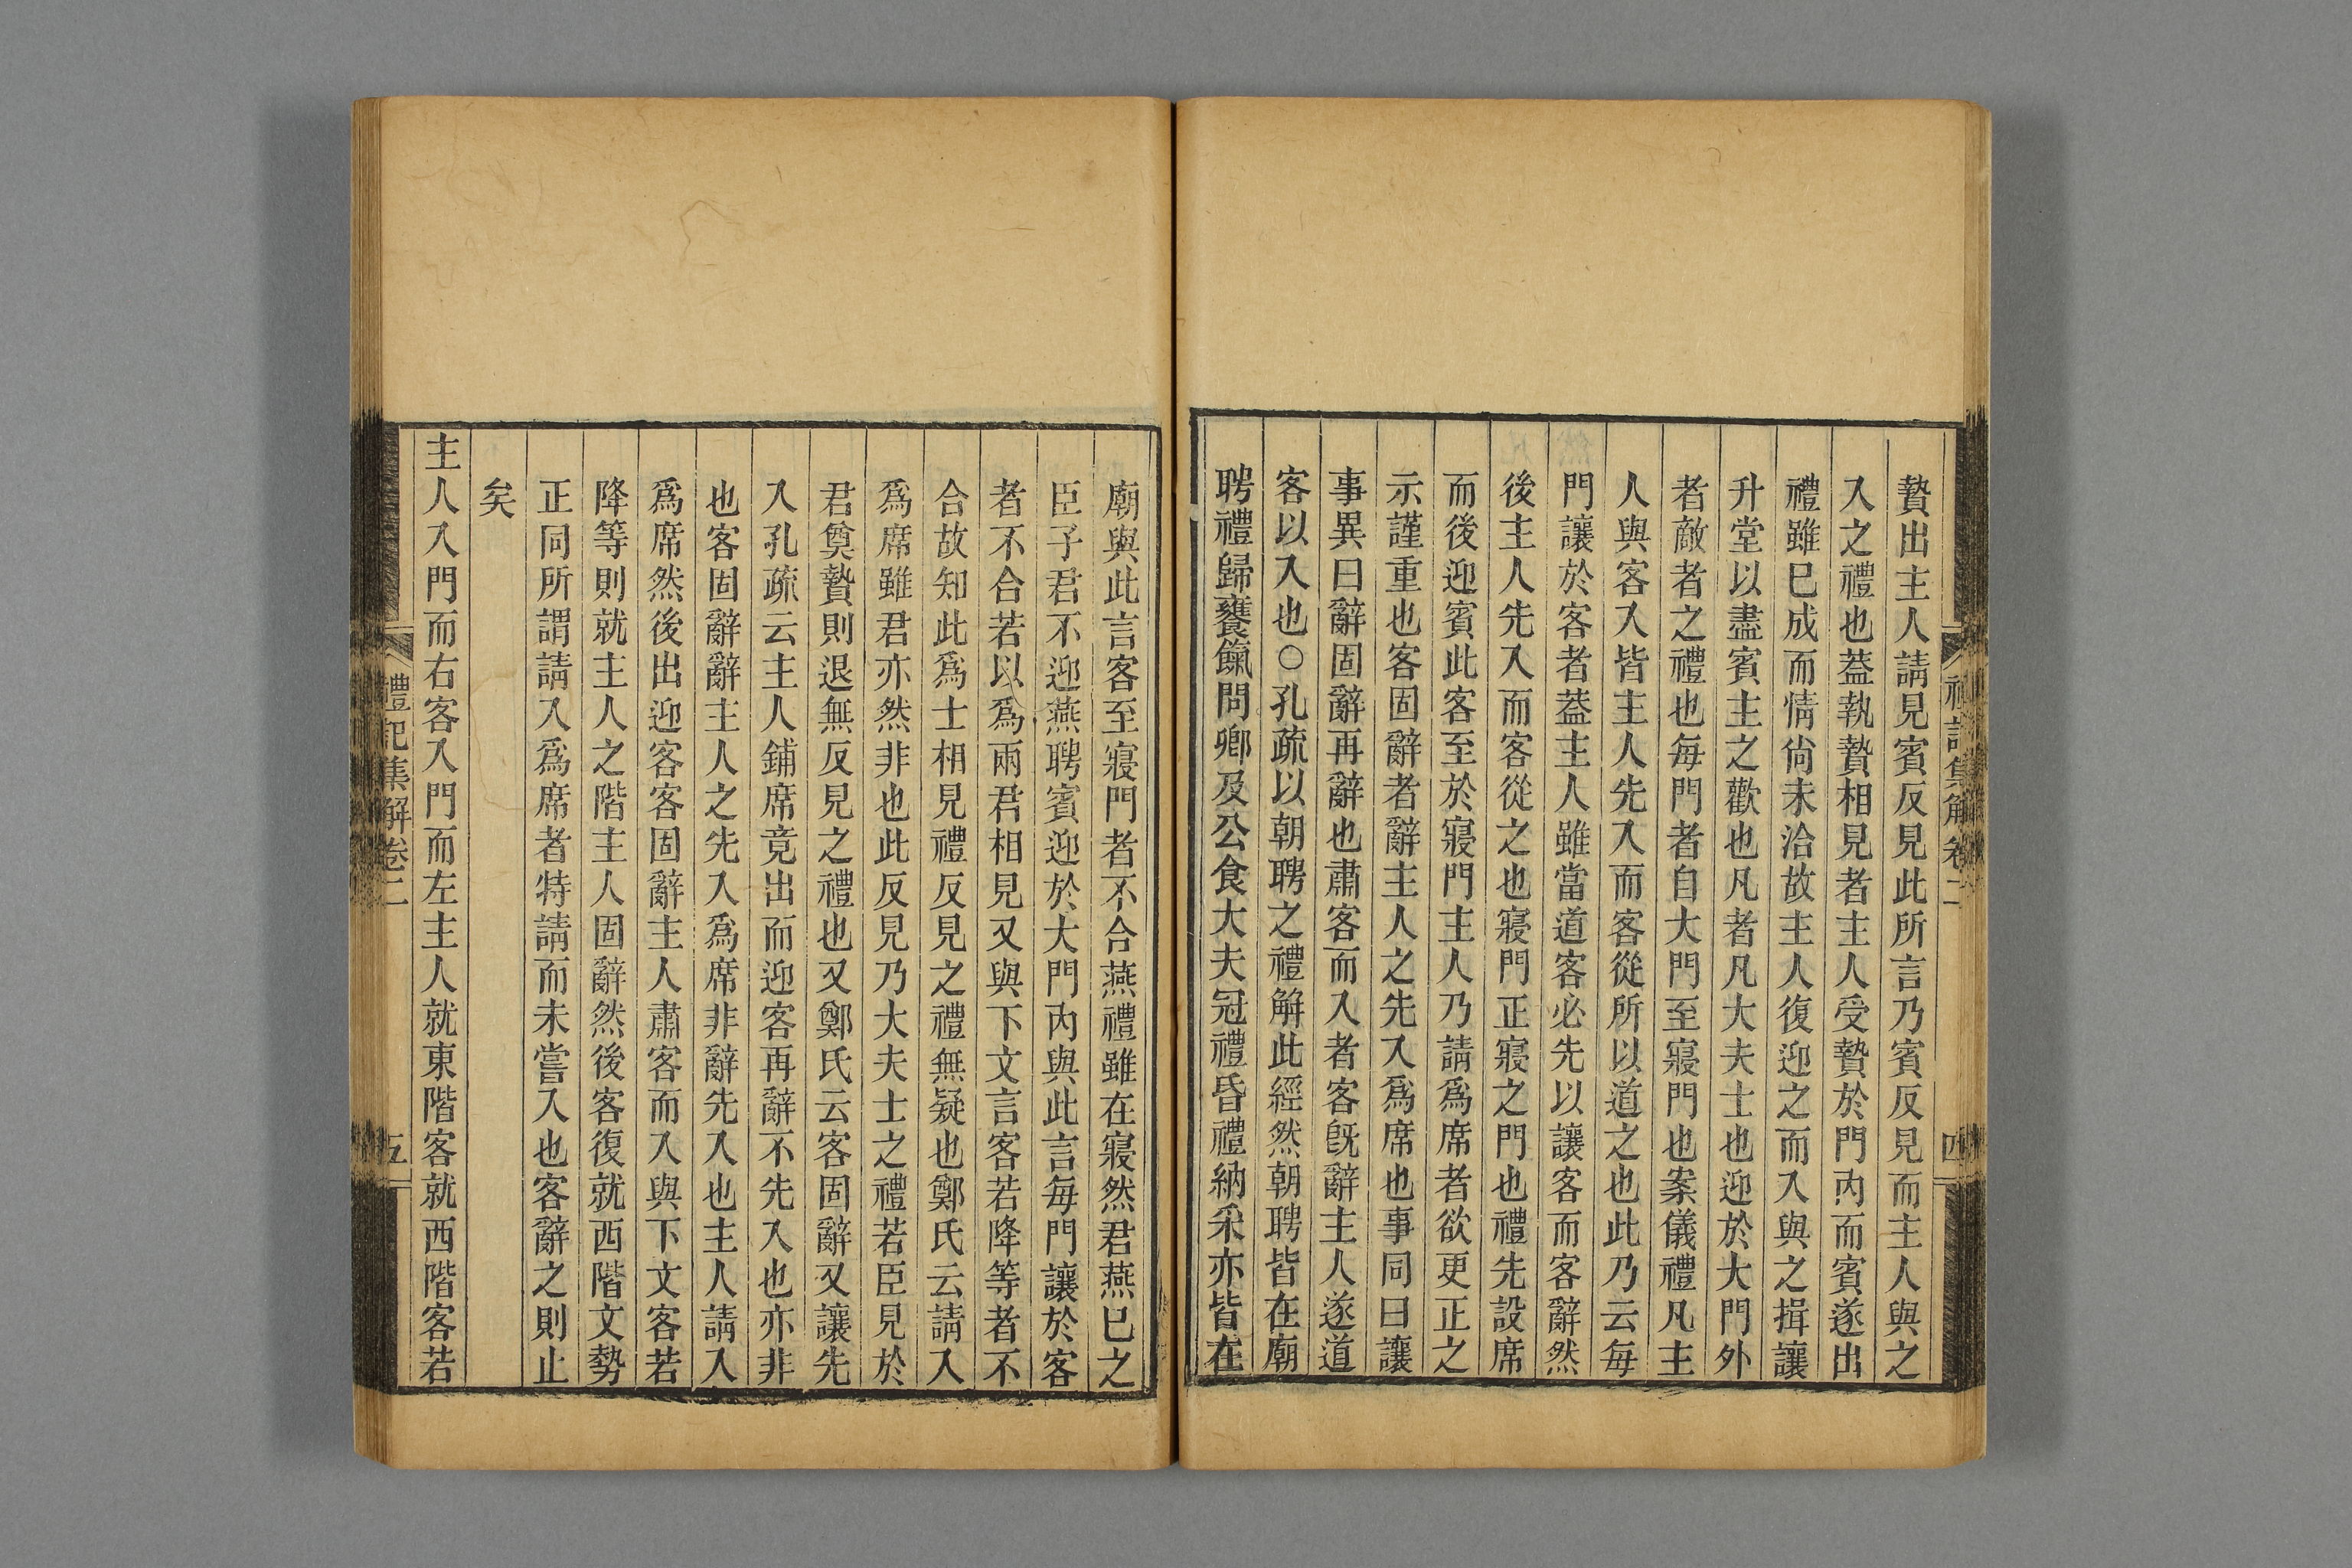 禮記集解卷二
四
贄出主人請見賓反見此所言乃賓反見而主人與之
入之禮也葢執贄相見者主人受贄於門內而賓遂出
禮雖巳成而情尙未洽故主人復迎之而入與之揖讓
升堂以盡賓主之歡也凡者凡大夫士也迎於大門外
者敵者之禮也每門者自大門至寢門也案儀禮凡主
人與客入皆主人先入而客從所以道之也此乃云每
門讓於客者葢主人雖當道客必先以讓客而客辭然
後主人先入而客從之也寢門正寢之門也禮先設席
而後迎賓此客至於寢門主人乃請爲席者欲更正之
示謹重也客固辭者辭主人之先入爲席也事同曰讓
事異曰辭固辭再辭也肅客而入者客旣辭主人遂道
客以入也○孔疏以朝聘之禮解此經然朝聘皆在廟
聘禮歸饔餼問卿及公食大夫冠禮昏禮納采亦皆在
廟與此言客至寢門者不合燕禮雖在寢然君燕巳之
臣子君不迎燕聘賓迎於大門內與此言每門讓於客
者不合若以爲兩君相見又與下文言客若降等者不
合故知此爲士相見禮反見之禮無疑也鄭氏云請入
爲席雖君亦然非也此反見乃大夫士之禮若臣見於
君奠贄則退無反見之禮也又鄭氏云客固辭又讓先
入孔疏云主人鋪席竟出而迎客再辭不先入也亦非
也客固辭辭主人之先入爲席非辭先入也主人請入
爲席然後出迎客客固辭主人肅客而入與下文客若
降等則就主人之階主人固辭然後客復就西階文勢
正同所謂請入爲席者特請而未嘗入也客辭之則止
矣
主人入門而右客入門而左主人就東階客就西階客若
禮記集解卷二
五